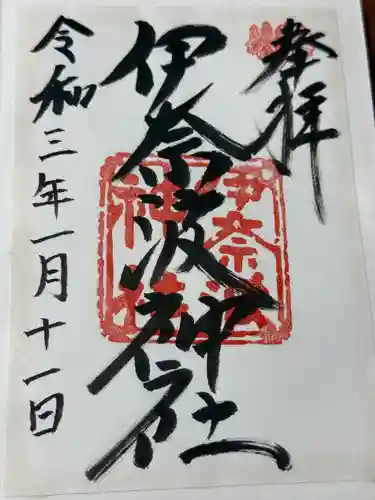 奉拝
伊奈波神社
令和三年一月十一日
伊奈波
神社